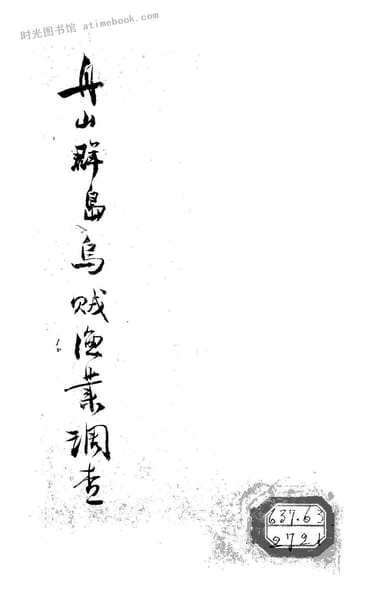 时光图书馆 atimebook.com
舟山群島烏賊漁業調查
637.63
2721